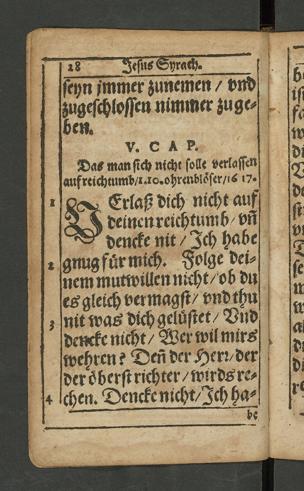 28 Jesus Syrach.
seyn jmmer zunemen / vnd
zugeschlossen nimmer zuge-
ben.
V. CAP.
Das man sich nicht solle verlassen
auf reichtumb/1.10. ohrenblöser/16 17.
1 VErlaß dich nicht auf
deinen reichtumb/ vñ
dencke nit / Ich habe
2 gnug für mich. Folge dei-
nem mutwillen nicht/ ob du
es gleich vermagst/ vnd thu
3 nit was dich gelüstet/ Vnd
dencke nicht/ Wer wil mirs
wehren? Deñ der Herr/ der
der öberst richter / wirds re-
4 chen. Dencke nicht/ Ich ha-
be